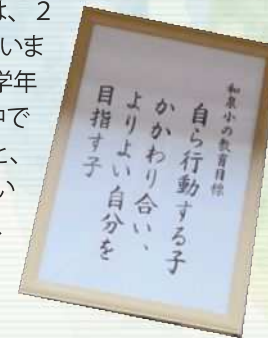 は、2
いま
学年
中で
と、
い
和泉小の教育目標
自ら行動する子
かかわり合い、
よりよい自分を
目指す子